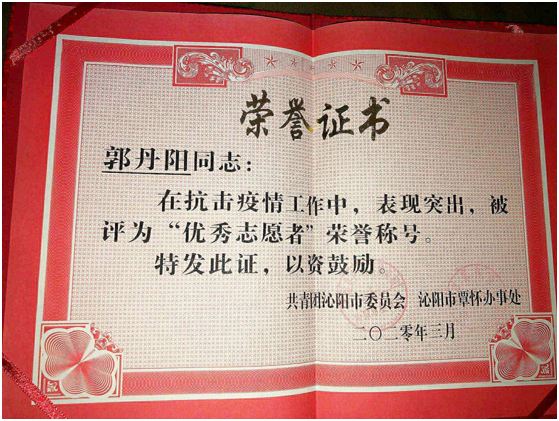 荣誉证书
郭丹阳同志：
在抗击疫情工作中，表现突出，被
评为“优秀志愿者”荣誉称号。
特发此证，以资鼓励。
共青团沁阳市委员会 沁阳市覃怀办事处
二〇二〇年三月